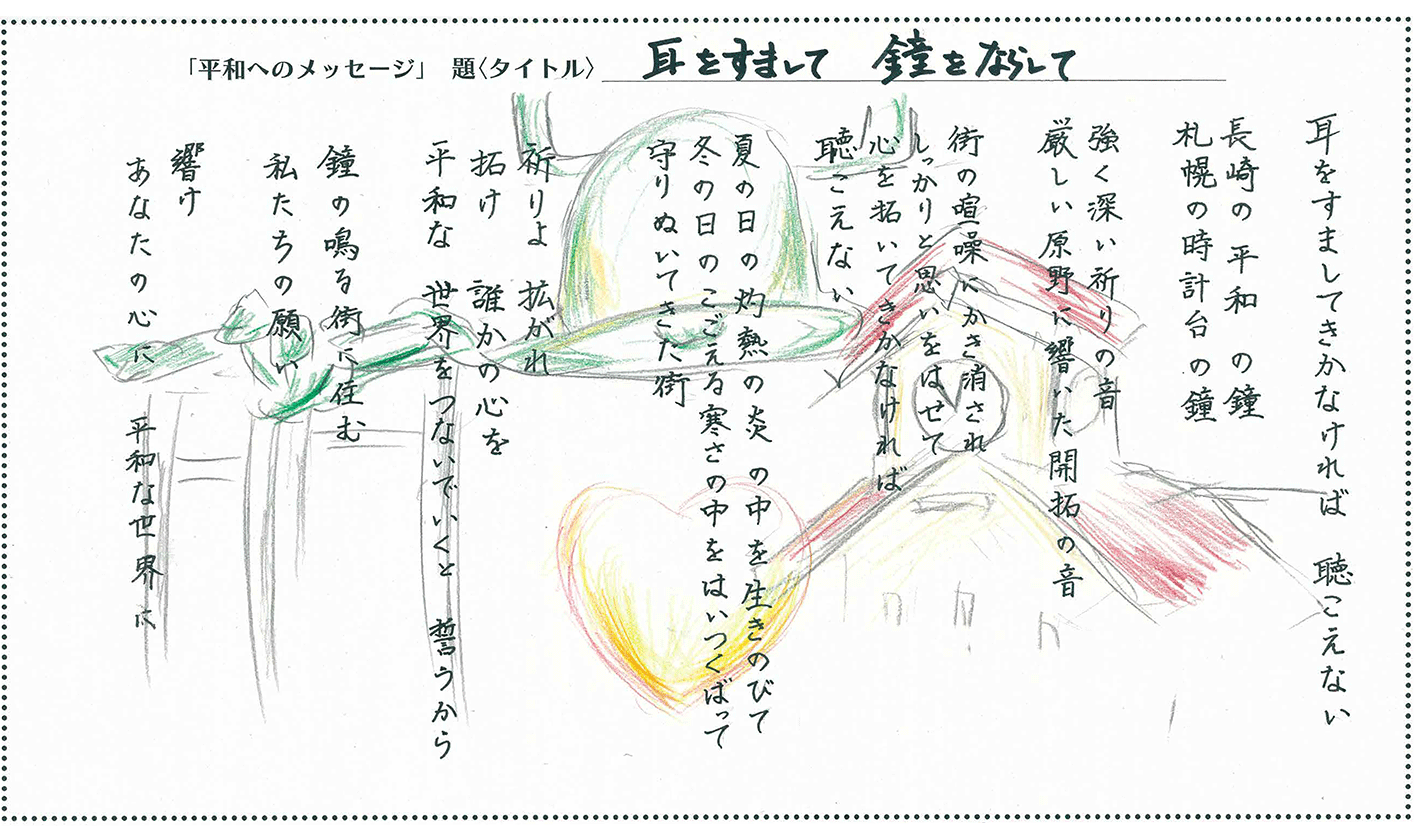 「平和へのメッセージ」 題〈タイトル〉 耳をすまして 鐘をならして
耳をすましてきかなければ 聴こえない
長崎の 平和 の鐘
札幌の時計台の鐘
強く深い祈りの音
厳しい原野に響いた開拓の音
街の喧噪にかき消され
しっかりと思いをはせて
心を拓いてきかなければ
聴こえない
夏の日の灼熱の炎の中を生きのびて
冬の日のこごえる寒さの中をはいつくばって
守りぬいてきた街
祈りよ 拡がれ
拓け 誰かの心を
平和な 世界をつないでいくと 誓うから
鐘の鳴る街に住む
私たちの願い
響け
あなたの心に 平和な世界に